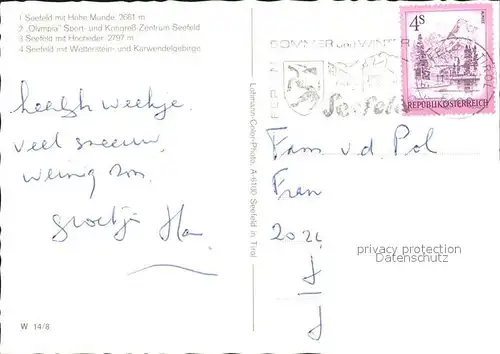 1 Seefeld mit Hohe Munde, 2661 m
2 „Olympia" Sport- und Kongreß-Zentrum Seefeld
3 Seefeld mit Hocheder, 2797 m
4 Seefeld mit Wetterstein- und Karwendelgebirge
heerlijk weekje.
veel sneeuw,
weinig zon.
groetjes
W 14/8
Lohmann-Color-Photo, A-6100 Seefeld in Tirol
SOMMER und WINTER
FERIEN
Seefeld
4S
REPUBLIK ÖSTERREICH
Fam v.d Pol
privacy protection
Datenschutz